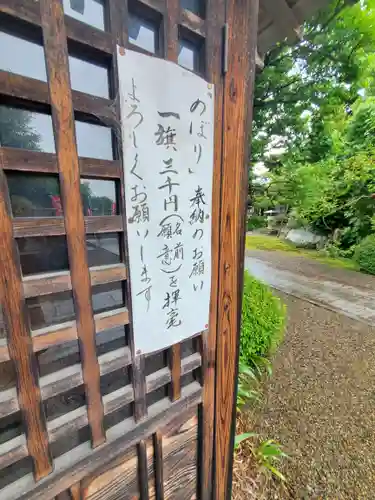 のぼり 奉納のお願い
一旗 三千円(名前 願意)を揮毫
よろしくお願いします